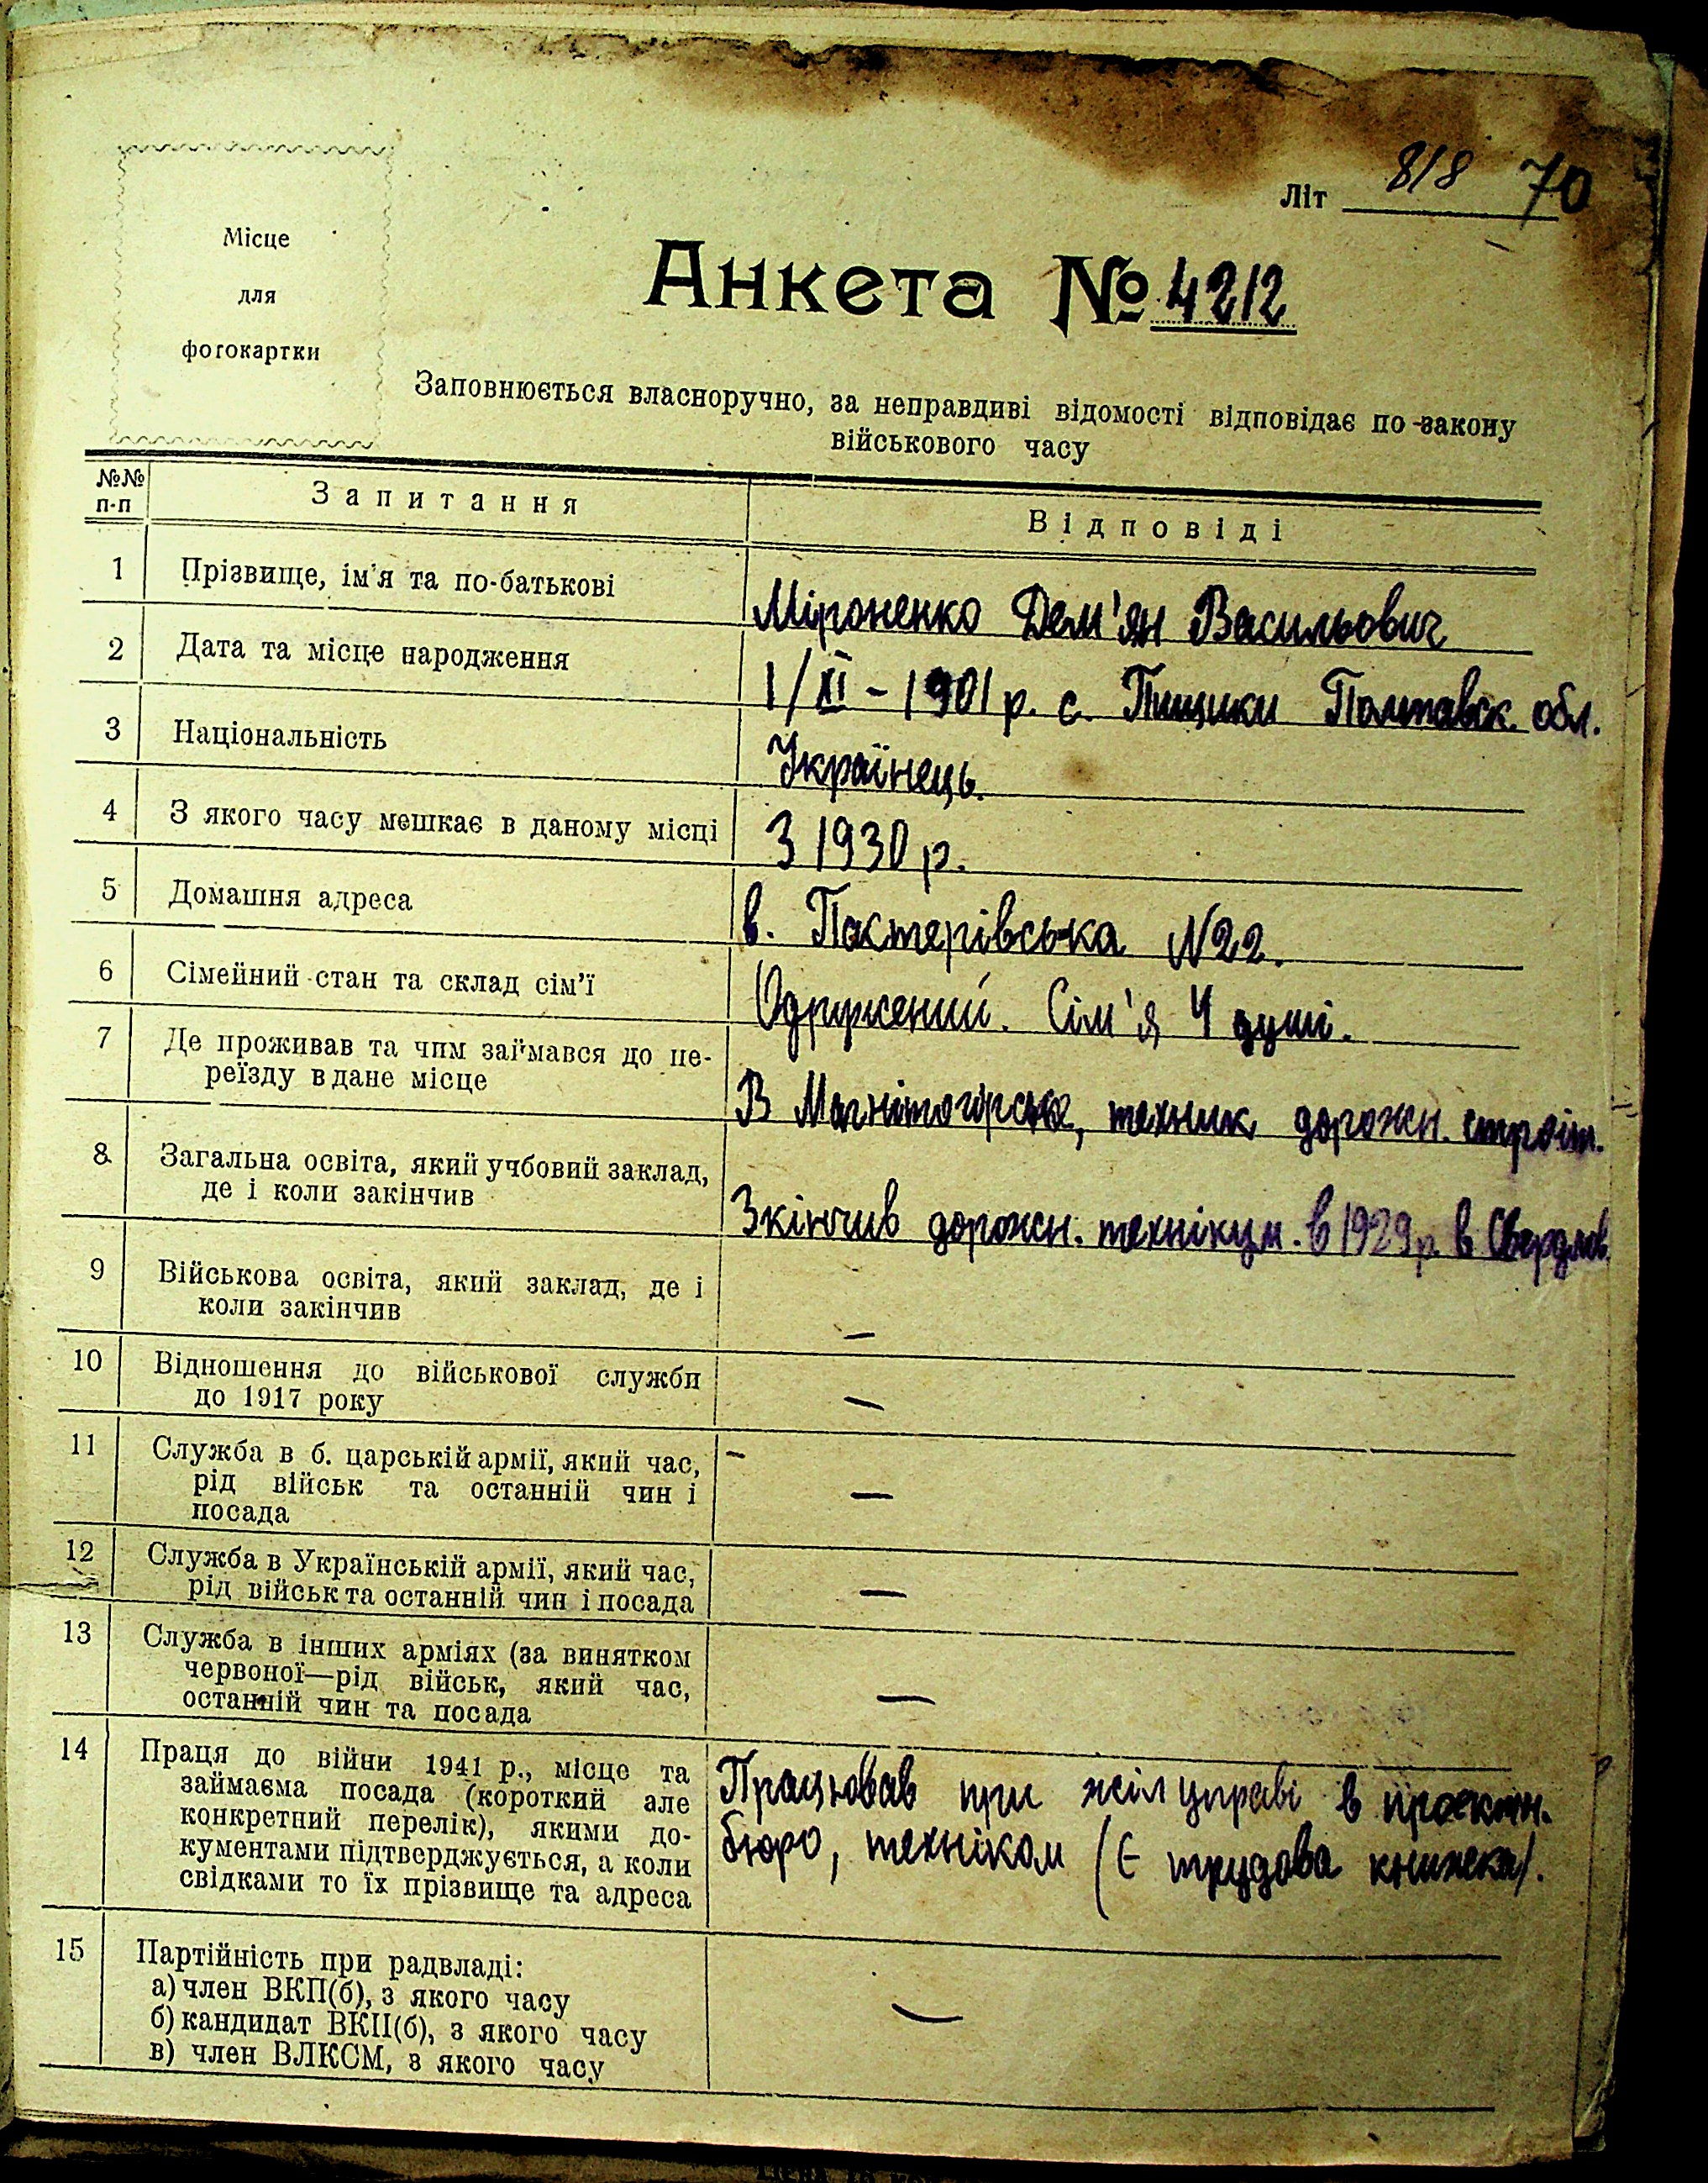 Літ 818 70
Місце
для
фотокартки
Анкета № 4212
Заповнюється власноручно, за неправдиві відомості відповідає по закону
військового часу
№№ п-п Запитання Відповіді
1 Прізвище, ім'я та по-батькові Міроненко Дем'ян Васильович
2 Дата та місце народження 1/XI - 1901 р. с. Пищики Полтавск. обл.
3 Національність Українець.
4 З якого часу мешкає в даному місці З 1930 р.
5 Домашня адреса в. Пастерівська N22.
6 Сімейний стан та склад сім'ї Одружений. Сім'я 4 душі.
7 Де проживав та чим займався до пе-
реїзду в дане місце В Магнітогорське, техник дорожн. строіт.
8 Загальна освіта, який учбовий заклад,
де і коли закінчив Зкінчив дорожн. технікум. в 1929 р. в Свердлов.
9 Військова освіта, який заклад, де і
коли закінчив —
10 Відношення до військової служби
до 1917 року —
11 Служба в б. царській армії, який час,
рід військ та останній чин і
посада —
12 Служба в Українській армії, який час,
рід військ та останній чин і посада —
13 Служба в інших арміях (за винятком
червоної—рід військ, який час,
останній чин та посада —
14 Праця до війни 1941 р., місце та Працював при жілуправі в проектн.
займаєма посада (короткий але
конкретний перелік), якими до- бюро, техніком (Є трудова книжека).
кументами підтверджується, а коли
свідками то їх прізвище та адреса
15 Партійність при радвладі: —
а) член ВКП(б), з якого часу
б) кандидат ВКП(б), з якого часу
в) член ВЛКСМ, з якого часу